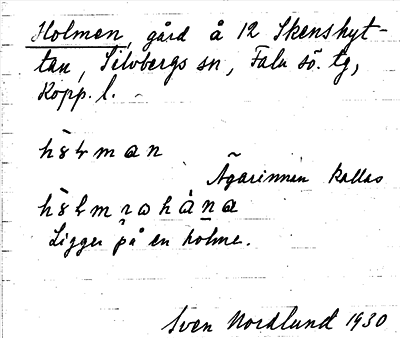 Holmen, gård å 12 Skenshyt-
tan, Silvbergs sn, Falu sö. tg,
Kopp. l.
hȯlman
Ägarinnan kallas
Ligger på en holme.
Sven Nordlund 1930